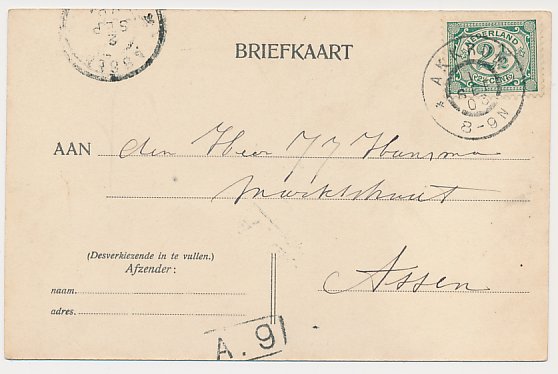 BRIEFKAART
NEDERLAND
2½
CENT
8-9N
AAN den Heer J J Hansma
Marktstraat
Assen
(Desverkiezende in te vullen.)
Afzender:
naam.
adres.
A.9